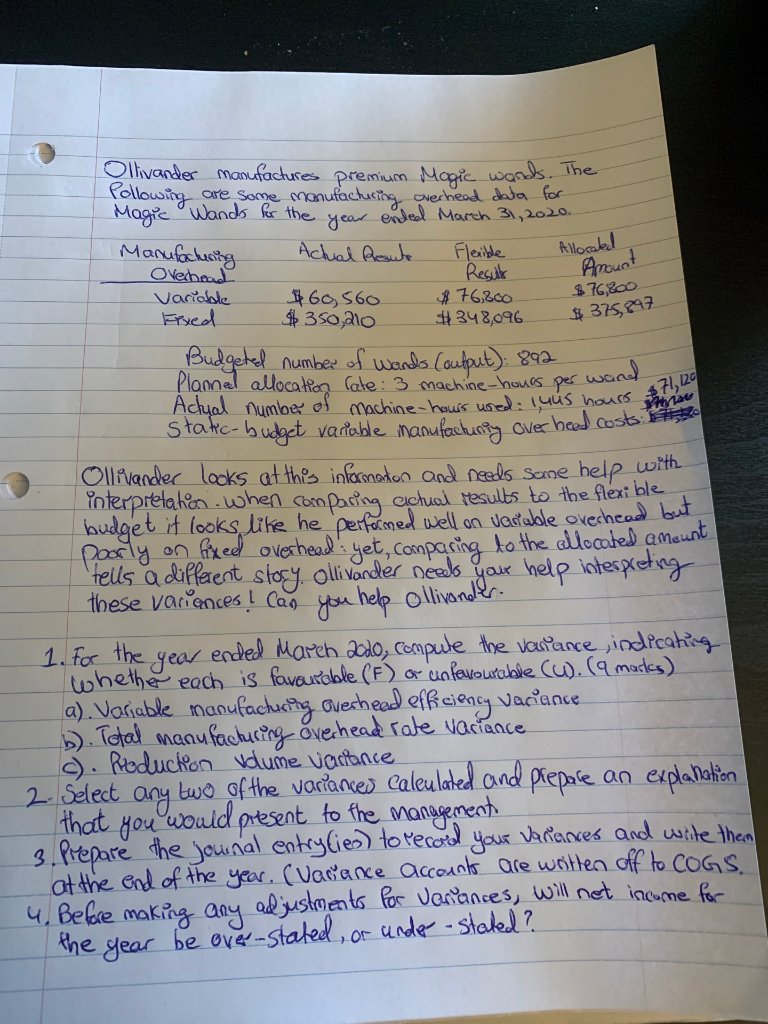 Ollivander manufactures premium Magic wands. The
following are some manufacturing overhead data for
Magic Wands for the year ended March 31, 2020.
Manufacturing Actual Results Flexible Allocated
Overhead Results Amount
Variable $60,560 $76,800 $76,800
Fixed $350,210 $348,096 $375,897
Budgeted number of wands (output): 892
Planned allocation rate: 3 machine-hours per wand
Actual number of machine-hours used: 1,445 hours
Static-budget variable manufacturing overhead costs: $71,120
Ollivander looks at this information and needs some help with
interpretation. when comparing actual results to the flexible
budget it looks like he performed well on variable overhead but
poorly on fixed overhead; yet, comparing to the allocated amount
tells a different story. Ollivander needs your help interpreting
these variances! Can you help Ollivander.
1. For the year ended March 2020, compute the variance, indicating
whether each is favourable (F) or unfavourable (U). (9 marks)
a). Variable manufacturing overhead efficiency variance
b). Total manufacturing overhead rate variance
c). Production volume variance
2. Select any two of the variances calculated and prepare an explanation
that you would present to the management.
3. Prepare the journal entry(ies) to record your variances and write them
at the end of the year. (Variance accounts are written off to COGS.
4. Before making any adjustments for variances, will net income for
the year be over-stated, or under-stated?